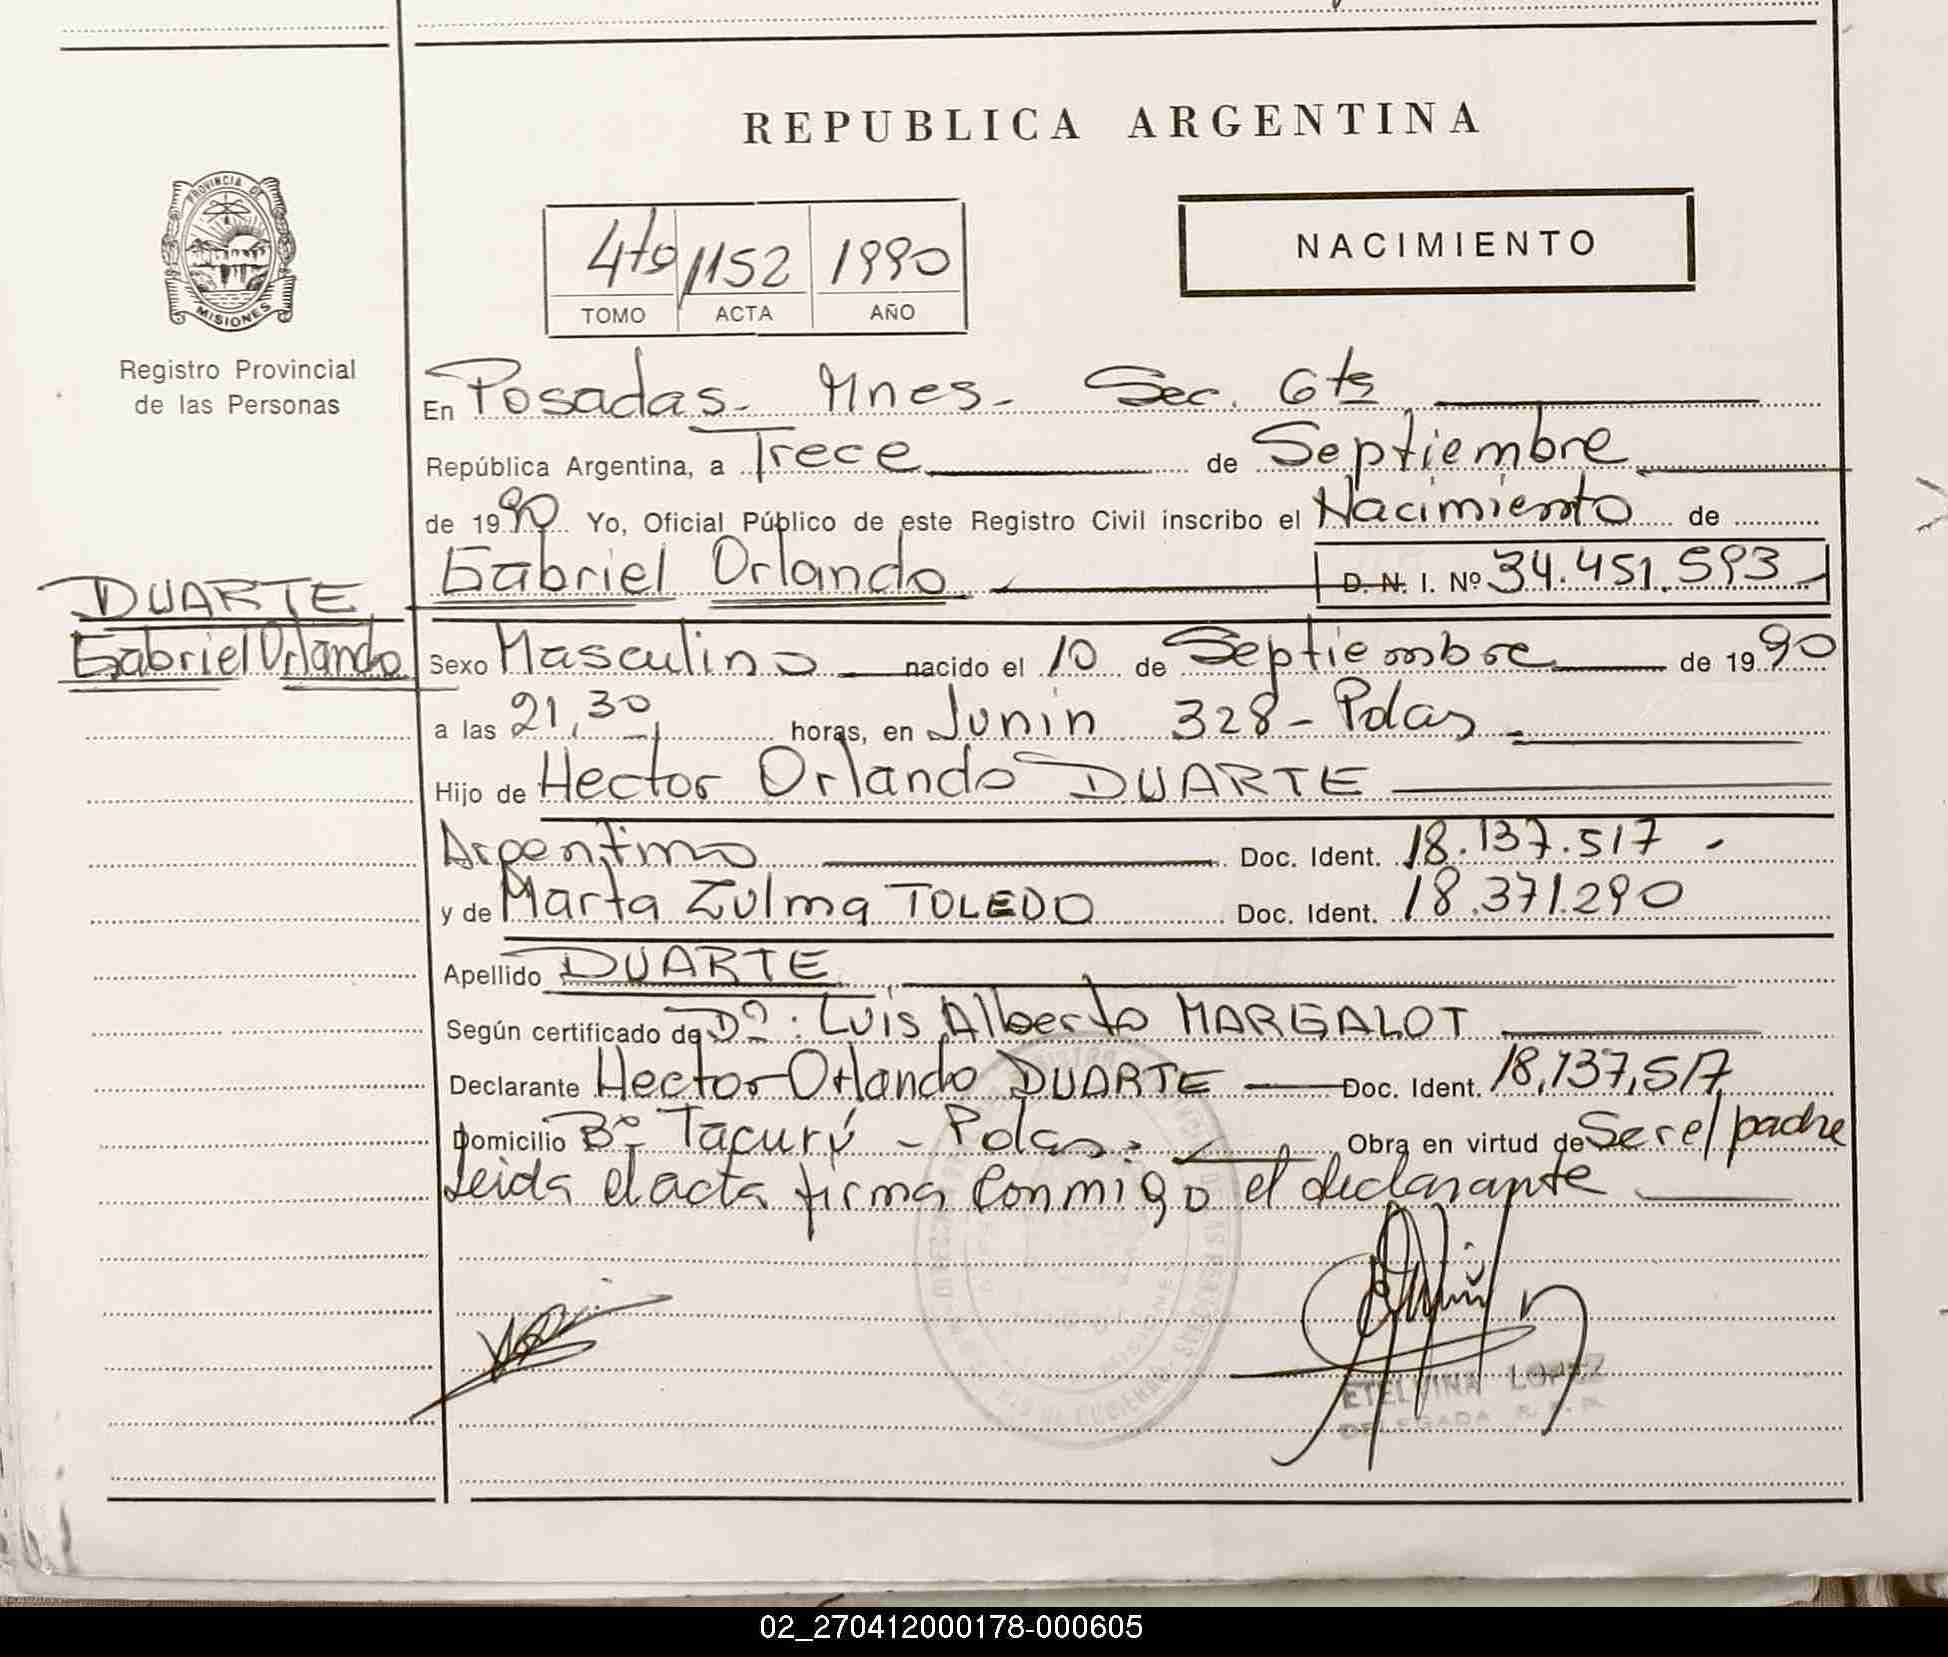 REPUBLICA ARGENTINA
PROVINCIA DE
MISIONES
Registro Provincial
de las Personas
4to 1152 1990
TOMO ACTA AÑO
NACIMIENTO
En Posadas - Mnes - Sec. 6ta
República Argentina, a Trece de Septiembre
de 1990 Yo, Oficial Público de este Registro Civil inscribo el Nacimiento de
Gabriel Orlando D. N. I. Nº 34.451.593
DUARTE
Gabriel Orlando
Sexo Masculino nacido el 10 de Septiembre de 1990
a las 21,30 horas, en Junin 328 - Pdas
Hijo de Hector Orlando DUARTE
Argentino Doc. Ident. 18.137.517 -
y de Marta Zulma TOLEDO Doc. Ident. 18.371.290
Apellido DUARTE
Según certificado de Dº: Luis Alberto MARGALOT
Declarante Hector Orlando DUARTE Doc. Ident. 18,137,517
Domicilio Bº Tacurú - Pdas. Obra en virtud de Ser el padre
Leida el acta firma conmigo el declarante
ETELVINA LOPEZ
DELEGADA R. P. P.
02_270412000178-000605